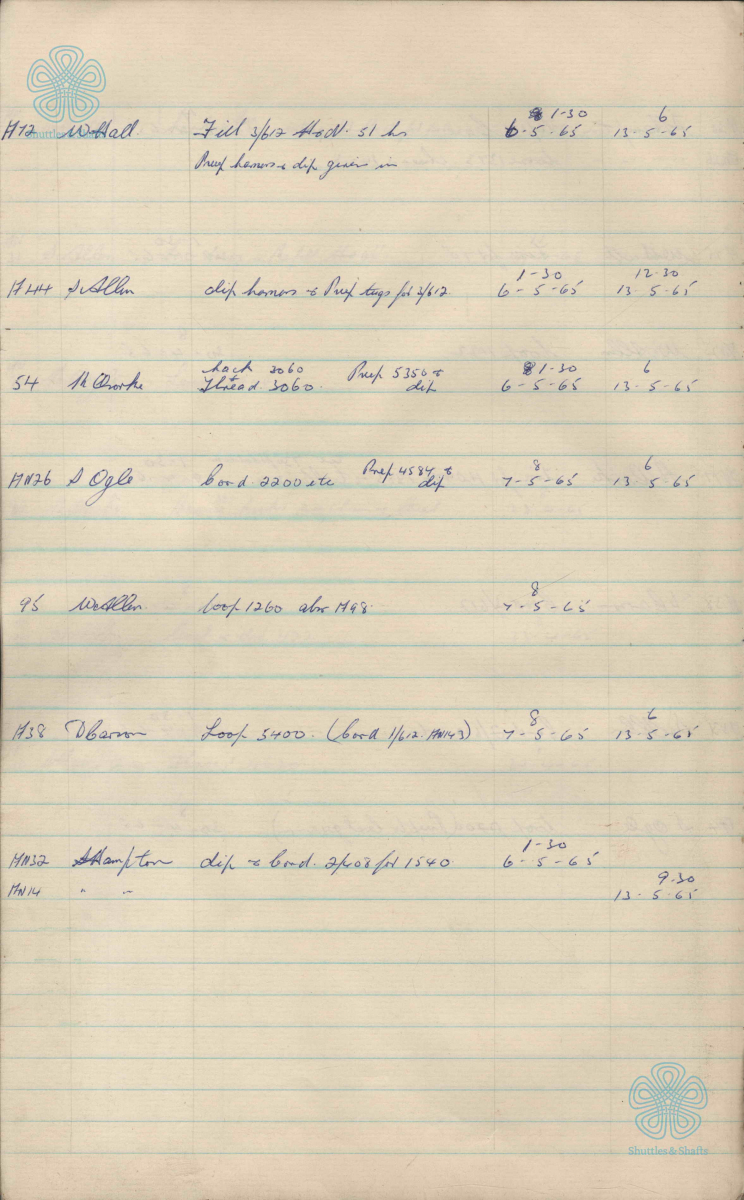 1-30 6
H72 W Hall Fill 3/612 51 hrs 6-5-65 13-5-65
Prep & dip given in
1-30 12-30
H44 S Allen dip & Prep tugs for 3/612 6-5-65 13-5-65
hack 3060 Prep 5350 & 1-30 6
54 Thread 3060. dip 6-5-65 13-5-65
Prep 4584 & 8 6
HN26 S Ogle Cord 2200 etc dip 7-5-65 13 5-65
8
95 W Allen Loop 1260 also H98 7-5-65
8 6
H38 D Carson Loop 5400. (Cord 1/612. HN143) 7-5-65 13-5-65
1-30
HN32 S Hampton dip & Cord. 2/408 for 1540 6-5-65
9-30
HN14 " " 13-5-65
Shuttles & Shafts